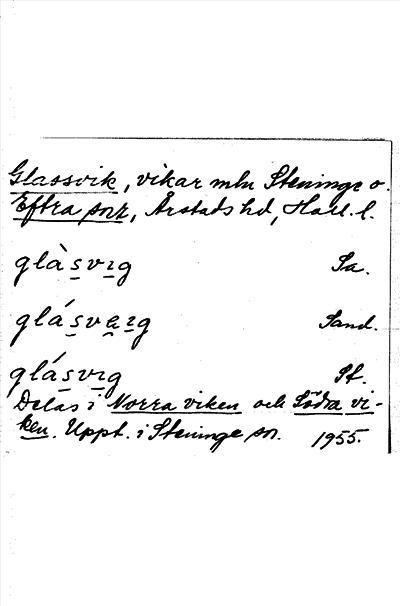 Glassvik, vikar mln Steninge o.
Eftra snr, Årstads hd, Hall. l.
glàsvıg Sa.
glásvaıg Sand.
glásvıg St.
Delas i Norra viken och Södra vi-
ken. Uppt. i Steninge sn. 1955.